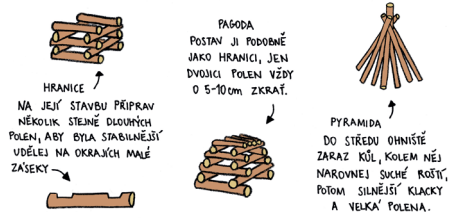 HRANICE
NA JEJÍ STAVBU PŘIPRAV
NĚKOLIK STEJNĚ DLOUHÝCH
POLEN, ABY BYLA STABILNĚJŠÍ
UDĚLEJ NA OKRAJÍCH MALÉ
ZÁSEKY
PAGODA
POSTAV JI PODOBNĚ
JAKO HRANICI, JEN
DVOJICI POLEN VŽDY
O 5-10cm ZKRAŤ.
PYRAMIDA
DO STŘEDU OHNIŠTĚ
ZARAZ KŮL, KOLEM NĚJ
NAROVNEJ SUCHÉ ROŠTÍ,
POTOM SILNĚJŠÍ KLACKY
A VELKÁ POLENA.